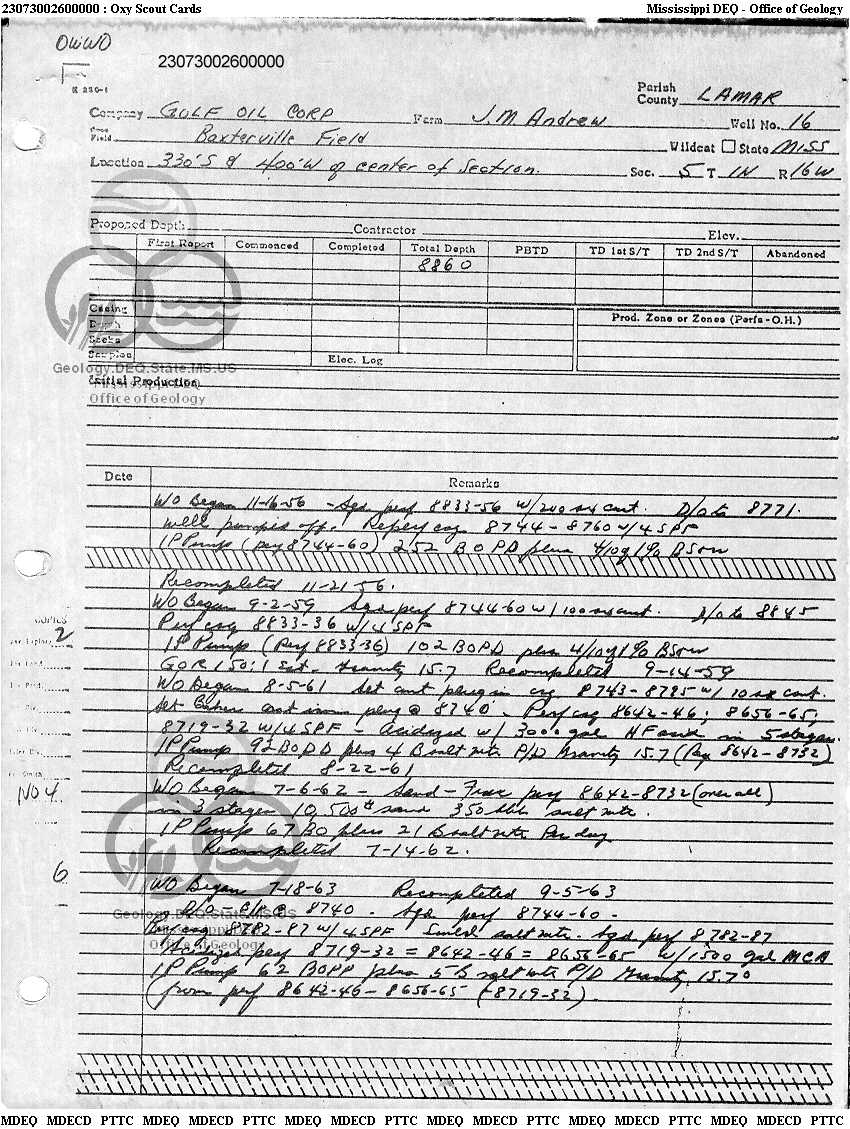 23073002600000 : Oxy Scout Cards Mississippi DEQ - Office of Geology
OWWO
23073002600000
Parish
County LAMAR
Company GULF OIL CORP Farm J.M. Andrew Well No. 16
Field Baxterville Field Wildcat State MISS
Location 330'S & 400'W of center of Section. Sec. 5 T 1N R 16W
Proposed Depth Contractor Elev.
First Report Commenced Completed Total Depth PBTD TD 1st S/T TD 2nd S/T Abandoned
8860
Casing Prod. Zone or Zones (Perfs-O.H.)
Depth
Sacks
Samples Elec. Log
Geology.DEQ.State.MS.US
Initial Production
Office of Geology
Date Remarks
WO Began 11-16-56 - Sqd perf 8833-56 w/200 sx cmt. D/o to 8771.
well pumped off. Reperf csg 8744-8760 w/4 SPF
IP Pump (perf 8744-60) 252 BOPD plus 4/10 of 1% BS&W
Recompleted 11-21-56.
WO Began 9-2-59 Sqd perf 8744-60 w/100 sx cmt. D/o to 8845
Perf csg 8833-36 w/4 SPF
IP Pump (Perf 8833-36) 102 BOPD plus 4/10 of 1% BS&W
GOR 150:1 Est. Gravity 15.7 Recompleted 9-14-59
WO Began 8-5-61 Set cmt plug in csg 8743-8785 w/10 sx cmt.
Set Bakers cast iron plug @ 8740. Perf csg 8642-46; 8656-65;
8719-32 w/4 SPF - Acidized w/ 3000 gal HF acid in 5 stages.
IP Pump 92 BOPD plus 4 B salt wtr P/D Gravity 15.7 (Perf 8642-8732)
Recompleted 8-22-61
WO Began 7-6-62 - Sand-Frac perf 8642-8732 (over all)
in 3 stages 10,500# sand 350 bbls salt wtr.
IP Pump 67 BO plus 21 B salt wtr Per day
Recompleted 7-14-62.
COPIES
2
No 4
6
WO Began 7-18-63 Recompleted 9-5-63
D/o 8740. Sqd perf 8744-60.
Geology.DEQ.State.MS.US
Perf csg 8782-87 w/4 SPF Swbd salt wtr. Sqd perf 8782-87
Office of Geology
Acidized perf 8719-32 = 8642-46 = 8656-65 w/1500 gal MCA
IP Pump 62 BOPD plus 5 B salt wtr P/D Gravity 15.7°
(from perf 8642-46 - 8656-65 (-8719-32).
MDEQ MDECD PTTC MDEQ MDECD PTTC MDEQ MDECD PTTC MDEQ MDECD PTTC MDEQ MDECD PTTC MDEQ MDECD PTTC